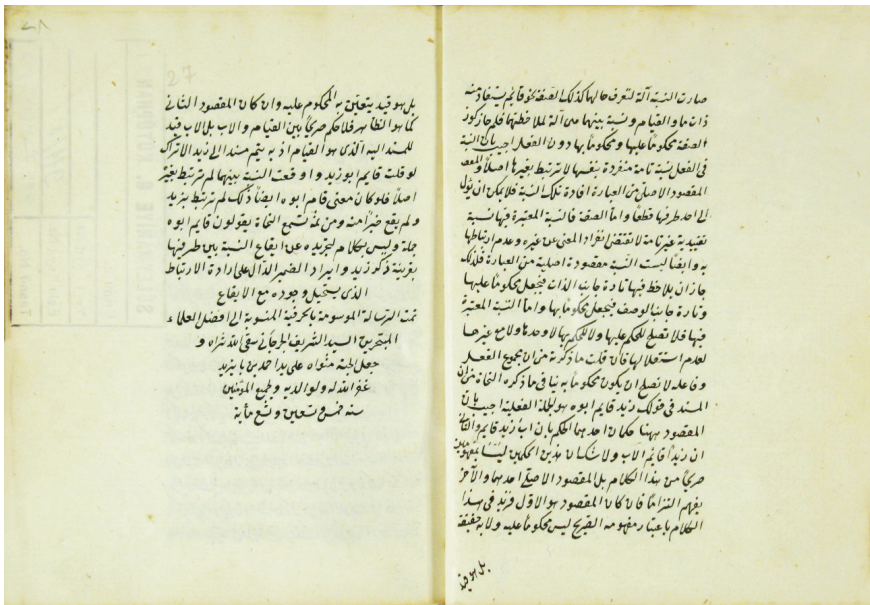 صارت النسبة آلة لتعرف حالها كذلك الصفة نحو قائم يستفاد منه
ذات ما والقيام ونسبة بينهما هي آلة لملاحظتهما فلم جاز كون
الصفة محكوما عليها ومحكوما بها دون الفعل اجيب بان النسبة
في الفعل نسبة تامة منفردة بنفسها لا ترتبط بغيرها اصلا والمقصود
المقصود الاصلي من العبارة افادة تلك النسبة فلا يمكن ان يؤل
الى احد طرفيها قطعا واما الصفة فالنسبة المعتبرة فيها نسبة
تقييدية غير تامة لا تقتضي انفراد المعنى عن غيره وعدم ارتباطها
به وايضا ليست النسبة مقصودة اصلية من العبارة فلذلك
جاز ان يلاحظ فيها تارة جانب الذات فتجعل محكوما عليها
وتارة جانب الوصف فتجعل محكوما بها واما النسبة المعتبرة
فيها فلا تصلح للحكم عليها ولا للحكم بها لا وحدها ولا مع غيرها
لعدم استقلالها فان قلت ما ذكرته من ان مجموع الفعل
وفاعله لا تصلح ان يكون محكوما به ينافي ما ذكره النحاة من ان
المسند في قولك زيد قايم ابوه هو الجملة الفعلية اجيب بان
المقصود ههنا حكمان احدهما الحكم بان اب زيد قايم والثاني
ان زيدا قايم الاب ولا شك ان هذين الحكمين ليسا بمفهومين
صريحا من هذا الكلام بل المقصود الاصلي احدهما والآخر
يفهم التزاما فان كان المقصود هو الاول فزيد في هذا
الكلام باعتبار مفهومه الصريح ليس محكوما عليه ولا به حقيقة
بل هو قيد
27
بل هو قيد يتعين به المحكوم عليه وان كان المقصود الثاني
كما هو الظاهر فلا حكم صريحا بين القيام والاب بل الاب قيد
للمسند اليه الذي هو القيام اذ به يتم مسندا الى زيد الا ترى انك
لو قلت قايم ابو زيد واوقعت النسبة بينهما لم ترتبط بغير
اصلا فلو كان معنى قام ابوه ايضا ذلك لم ترتبط بزيد
ولم يقع خبرا منه ومن ثمة تسمع النحاة يقولون قايم ابوه
جملة وليس بكلام لتجريده عن ايقاع النسبة بين طرفيها
بقرينة ذكر زيد وايراد الضمير الدال على ارادة الارتباط
الذي يستحيل وجوده مع الايقاع
تمت الرسالة الموسومة بالحرفية المنسوبة الى افضل العلماء
المتبحرين السيد الشريف الجرجاني سقى الله ثراه و
جعل الجنة مثواه على يد احمد بن بايزيد
غفر الله له ولوالديه ولجميع المؤمنين
سنه خمس وتسعين وتسع مأية